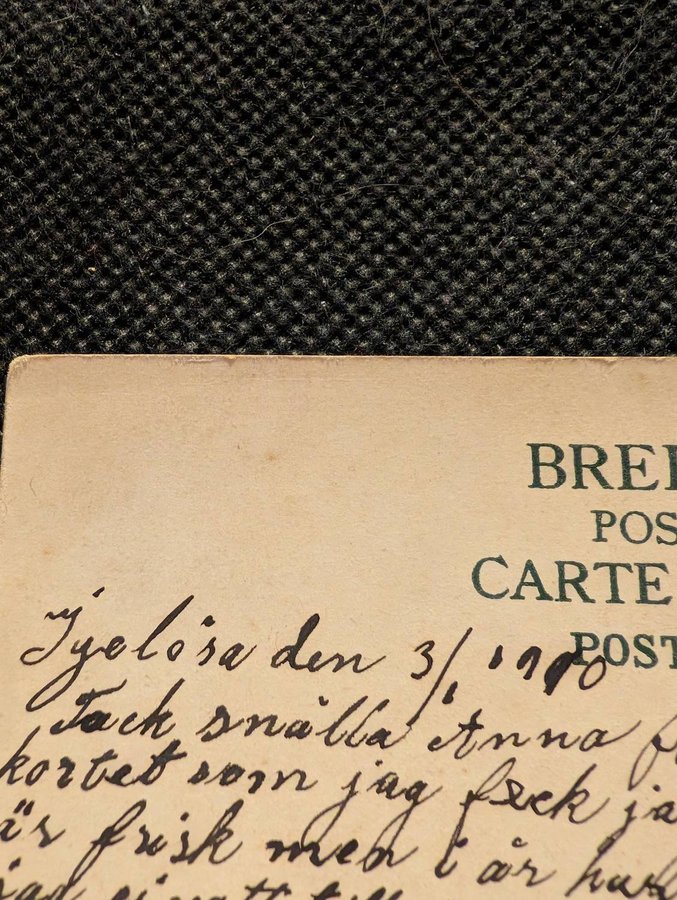 BREF
POS
CARTE
POST
Fjelösa den 3/1 1910
Tack snälla Anna f
kortet som jag feck ja
är frisk men i år har
jag